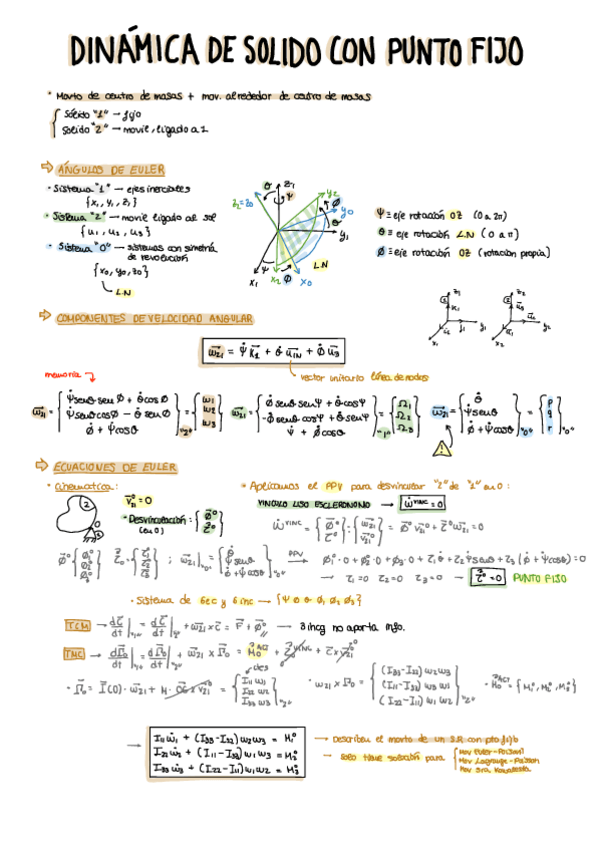 DINÁMICA DE SOLIDO CON PUNTO FIJO
· Movto de centro de masas + mov. alrededor de centro de masas
Sólido "1" → fijo
Solido "2" → movil, ligado a 1
⇨ ÁNGULOS DE EULER
· Sistema "1" → ejes inerciales
{x₁, y₁, z₁}
· Sistema "2" → movil ligado al sol
{u₁, u₂, u₃}
· Sistema "0" → sistemas con simetría
de revolución
{x₀, y₀, z₀}
↳ L.N
Ψ ≡ eje rotación OZ (0 a 2π)
θ ≡ eje rotación L.N (0 a π)
Ø ≡ eje rotación OZ (rotación propia)
⇨ COMPONENTES DE VELOCIDAD ANGULAR
ω₂₁ = Ψ̇ k₁ + θ̇ u_LN + Ø̇ u₃
vector unitario línea de nodos
memoria
ω₂₁ = {Ψ̇senθ senØ + θ̇cosØ
Ψ̇senθcosØ - θ̇ senØ
Ø̇ + Ψ̇cosθ}"2" = {ω₁ ω₂ ω₃}
ω₂₁ = {Ø̇senθ senΨ + θ̇cosΨ
-Ø̇senθ cosΨ + θ̇senΨ
Ψ̇ + Ø̇cosθ}"1" = {Ω₁ Ω₂ Ω₃}
ω₂₁ = {θ̇
Ψ̇senθ
Ø̇ + Ψ̇cosθ}"0" = {p q r}"0"
⇨ ECUACIONES DE EULER
· Cinematica:
v₂₁⁰ = 0
· Desvinculación: {Ø⁰ τ⁰}
(en O)
· Aplicamos el PPV para desvincular "2" de "1" en O:
VINCULO LISO ESCLERONOMO → Ẇ VINC = 0
Ẇ VINC = {Ø⁰ τ⁰} · {ω₂₁ v₂₁⁰} = Ø⁰ v₂₁⁰ + τ⁰ω₂₁ = 0
Ø⁰{Ø₁⁰ Ø₂⁰ Ø₃⁰} τ⁰={τ₁⁰ τ₂⁰ τ₃⁰} ; ω₂₁|"0" = {θ̇ Ψ̇senθ Ø̇+Ψ̇cosθ}"0" PPV → Ø₁⁰·0 + Ø₂⁰·0 + Ø₃·0 + τ₁θ̇ + τ₂Ψ̇senθ + τ₃(Ø̇ + Ψ̇cosθ) = 0
→ τ₁ = 0 τ₂ = 0 τ₃ = 0 → τ⁰ = 0 PUNTO FIJO
· Sistema de 6ec y 6inc → {Ψ Ø θ Ø₁ Ø₂ Ø₃}
TCM → dC/dt |"1" = dC/dt |"2" + ω₂₁ × C = F + Ø⁰ → 3 incg no aporta info.
TMC → dΓ₀/dt |"1" = dΓ₀/dt |"2" + ω₂₁ × Γ₀ = M₀ACT + τ₀VINC + C × v₂₁⁰
· Γ₀ = I(O)·ω₂₁ + M·OG × v₂₁⁰ = {I₁₁ω₁ I₂₂ω₂ I₃₃ω₃}"2"
· ω₂₁ × Γ₀ = {(I₃₃-I₂₂) ω₂ω₃
(I₁₁-I₃₃) ω₁ω₃
(I₂₂-I₁₁) ω₁ω₂}"2"
· M₀ACT = {M₁⁰, M₂⁰, M₃⁰}
→ I₁₁ω̇₁ + (I₃₃-I₂₂) ω₂ω₃ = M₁⁰
I₂₁ω̇₂ + (I₁₁-I₃₃) ω₁ω₃ = M₂⁰
I₃₃ω̇₃ + (I₂₂-I₁₁) ω₁ω₂ = M₃⁰
→ Describen el movto de un S.R con pto fijo
→ Solo tiene solución para
Mov Euler-Poinsot
Mov Lagrange-Poisson
Mov Sra. Kovalevska